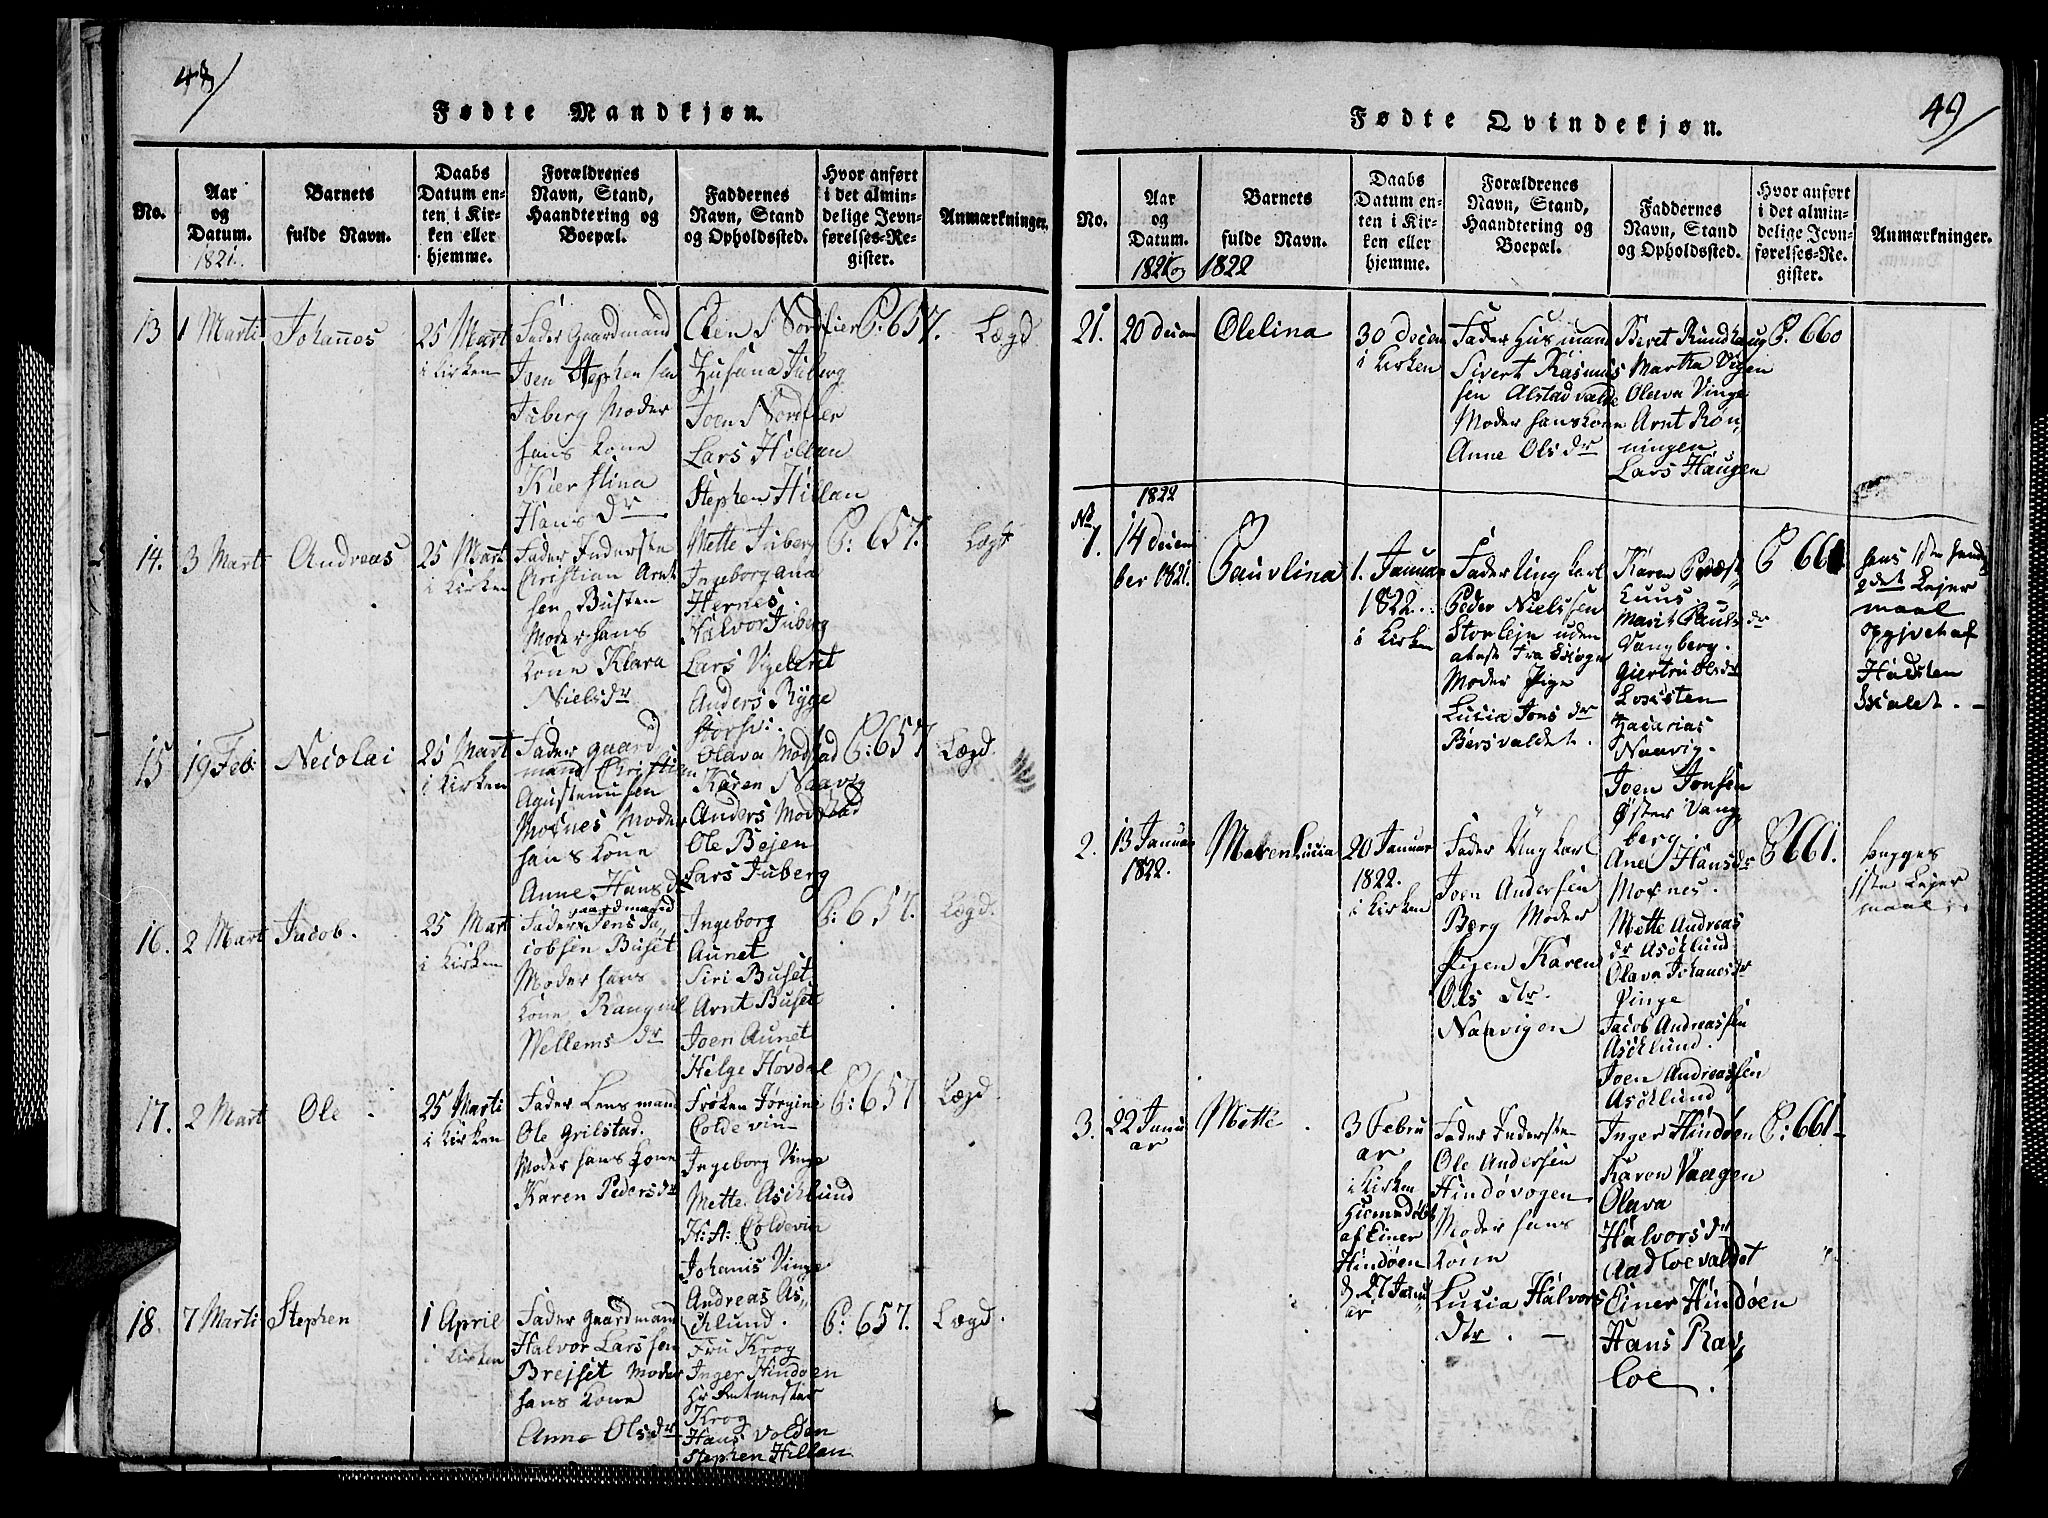 48/
Fødte Mandkjøn.
No.
Aar
og
Datum.
1821.
Barnets
fulde Navn.
Daabs
Datum en-
ten i Kir-
ken eller
hjemme.
Forældrenes
Navn, Stand,
Haandtering og
Boepæl.
Faddernes
Navn, Stand
og Opholdssted.
Hvor anført
i det almin-
delige Jevn-
førelses-Re-
gister.
Anmærkninger.
13
1 Marti
Johannes
25 Mart
i Kirken
Fader Gaardmand
Joen Stephensen
Juberg Moder
hans Kone
Kierstina
Hans dr
Elen Nordfier
Zusana Juberg
Joen Nordfier
Lars Hillan
Stephen Hillan
P: 657.
Lægd.
14.
3 Mart
Andreas
25 Mart
i Kirken
Fader Inderste
Christian Arnt
sen Busten
Moder hans
Kone Klara
Niels dr
Mette Juberg
Ingeborg ana
Hernes.
Halvor Juberg
Lars Vigeleret
Anders Rygge
P: 657.
Lægt
15
19 Feb:
Nicolai
25 Mart
i Kirken
Fader gaard
mand Christien
Agustenusen
Moxnes Moder
hans Kone
Anne Hans dr
Olava Mostad
Karen Naavig
Anders Mostad
Ole Bejen
Lars Juberg
P: 657
Lægd.
16.
2 Mart
Jacob.
25 Mart
i Kirken
gaardmand
Fader Jens Ja„
cobsen Buset
Moder hans
Kone Rangnil
Wellems dr
Ingeborg
Aunet
Siri Buset
Arnt Buset
Joen Aunet
Helge Hovdal
P: 657.
Lægd.
17.
2 Mart
Ole
25 Marti
i Kirken
Fader Lensmand
Ole Grilstad.
Moder hans Kone
Karen Peders dr
Frøken Jørgine
Coldevin
Ingeborg Vinge
Mette Aschlund
H: A: Coldevin
Johanis Vinge
Andreas As„
chlund.
P: 657
Lægd.
18.
7 Marti
Stephen
1 April
i Kirken
Fader gaardmand
Halvor Larssen
Brejset Moder
hans Kone
Anne Ols dr
Fru Krog
Inger Hindøen
Hr Retmester
Krog
Hans Volden
Stephen Hillan
P: 657.
Lægd.
49/
Fødte Qvindekjøn.
No.
Aar
og
Datum.
1821 og
Barnets
fulde Navn.
1822
Daabs
Datum en-
ten i Kir-
ken eller
hjemme.
Forældrenes
Navn, Stand,
Haandtering og
Boepæl.
Faddernes
Navn, Stand
og Opholdssted.
Hvor anført
i det almin-
delige Jevn-
førelses-Re-
gister.
Anmærkninger.
21.
20 Decem
Olelina
30 Decem
i Kirken
Fader Husmand
Sivert Rasmus
sen Alstad valde
Moder hans Kone
Anne Ols dr
Beret Rundhaug
Martha Vigen
Olava Vinge
Arnt Røn„
ningen
Lars Haugen
P. 660
1822
No
1.
14 Decem
ber 1821.
Paulina
1. Januar
1822.
i Kirken
Fader Ung karl
Peder Nielssen
Storleje uden
atest fra Skogn
Moder Pige
Lucia Jons dr
Bersvaldet.
Karen Præst„
Luus.
Marit Pauls dr
Vangberg.
Giertru Ols dr
Loxsten
Zacarias
Naavig.
Joen Jonsen
Øster Vang
berg.
P 661
hans 1ste hendes
2det Lejer
maal
opgivet af
Haldsten
Skalet.
2.
13 Januar
1822.
Maren Lucia
20 Januar
1822.
i Kirken
Fader Ung karl
Joen Andersen
Berg Moder
Pigen Karen
Ols dtr.
Naavigen
Ane Hans dr
Moxnes.
Mette Andreas
dr Aschlund
Olava Johanes dr
Vinge
Jacob Andreassen
Aschlund.
Joen Andreassen
Aschlund
P 661.
begges
1ste Lejer
maal.
3.
22 Janu
ar
Mette
3 Febru
ar
i Kirken
hiemmedøbt
af Einer
Hindøen
d. 27 Janu
ar
Fader Inderste
Ole Andersen
Hindøvogen
Moder hans
Kone
Lucia Halvors
Dtr.
Inger Hindøen
Karen Vaagen
Olava
Halvors dr
Aadloevaldet
Einer Hindøen
Hans Rav„
loe.
P: 661